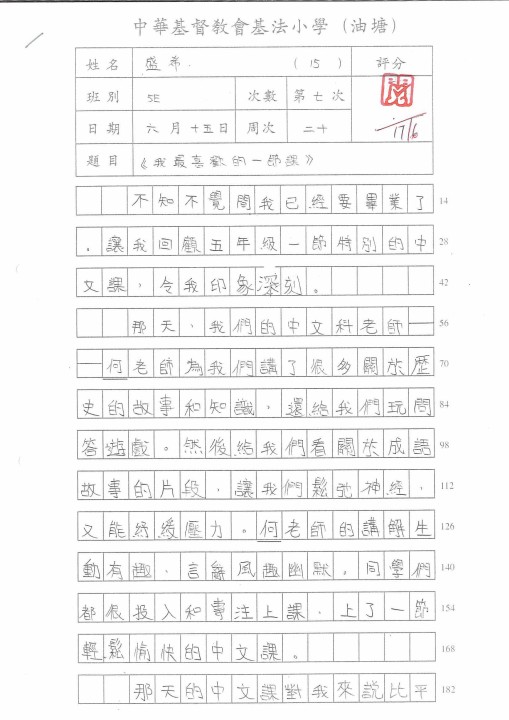 中華基督教會基法小學（油塘）
姓名 盛希 （15） 評分
班別 5E 次數 第七次
日期 六月十五日 周次 二十 17/6
題目 《我最喜歡的一節課》
不知不覺間我已經要畢業了 14
，讓我回顧五年級一節特別的中 28
文課，令我印象深刻。 42
那天，我們的中文科老師— 56
—何老師為我們講了很多關於歷 70
史的故事和知識，還給我們玩問 84
答遊戲。然後給我們看關於成語 98
故事的片段，讓我們鬆弛神經， 112
又能紓緩壓力。何老師的講解生 126
動有趣，言辭風趣幽默，同學們 140
都很投入和專注上課，上了一節 154
輕鬆愉快的中文課。 168
那天的中文課對我來說比平 182